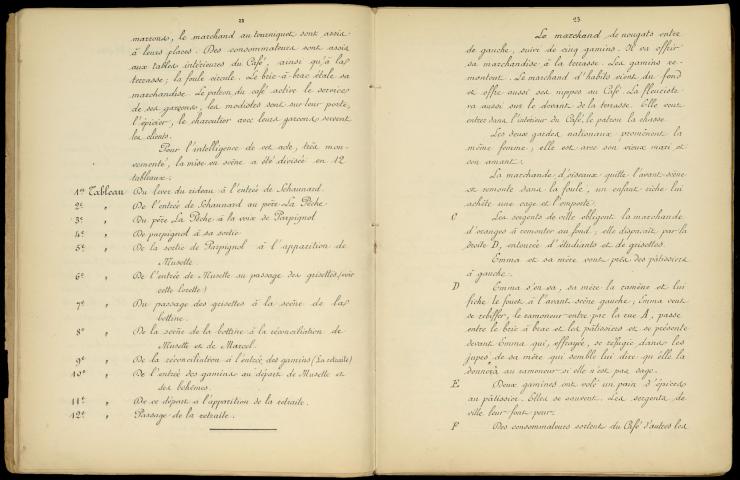 22
marrons, le marchand au tourniquet sont assis
à leurs places. Des consommateurs sont assis
aux tables intérieures du Café, ainsi qu'à la
terrasse; la foule circule. Le bric-à-brac étale sa
marchandise. Le patron du café active le service
de ses garçons, les modistes sont sur leur porte,
l'épicier, le charcutier avec leurs garçons servent
les clients.
Pour l'intelligence de cet acte, très mou-
vementé, la mise en scène a été divisée en 12
tableaux:
1er Tableau Du lever du rideau à l'entrée de Schaunard.
2e " De l'entrée de Schaunard au père La Pêche
3e " Du père La Pêche à la voix de Parpignol
4e " De parpignol à sa sortie
5e " De la sortie de Parpignol à l'apparition de
Musette
6e " De l'entrée de Musette au passage des grisettes (voir
cette lorette)
7e " Du passage des grisettes à la scène de la
bottine.
8e " De la scène de la bottine à la réconciliation de
Musette et de Marcel.
9e " De la réconciliation à l'entrée des gamins (La retraite)
10e " De l'entrée des gamins au départ de Musette et
des bohêmes.
11e " De ce départ à l'apparition de la retraite.
12e " Passage de la retraite.
23
Le marchand de nougats entre
de gauche, suivi de cinq gamins. Il va offrir
sa marchandise à la terrasse. Les gamins re-
montent. Le marchand d'habits vient du fond
et offre aussi ses nippes au Café. La fleuriste
va aussi sur le devant de la terrasse. Elle veut
entrer dans l'intérieur du Café, le patron la chasse.
Les deux gardes nationaux promènent la
même femme; elle est avec son vieux mari et
son amant.
La marchande d'oiseaux quitte l'avant-scène
et remonte dans la foule, un enfant riche lui
achète une cage et l'emporte.
C Les sergents de ville obligent la marchande
d'oranges à remonter au fond; elle disparaît par la
droite D, entourée d'étudiants et de grisettes.
Emma et sa mère vont près des pâtissiers
à gauche.
D Emma s'en va, sa mère la ramène et lui
fiche le fouet à l'avant scène gauche; Emma veut
se rebiffer, le ramoneur entre par la rue A, passe
entre le bric à brac et les pâtissiers et se présente
devant Emma qui, effrayée, se réfugie dans les
jupes de sa mère qui semble lui dire qu'elle la
donnera au ramoneur si elle n'est pas sage.
E Deux gamines ont volé un pain d'épices
au pâtissier. Elles se sauvent. Les sergents de
ville leur font peur.
F Des consommateurs sortent du Café d'autres les